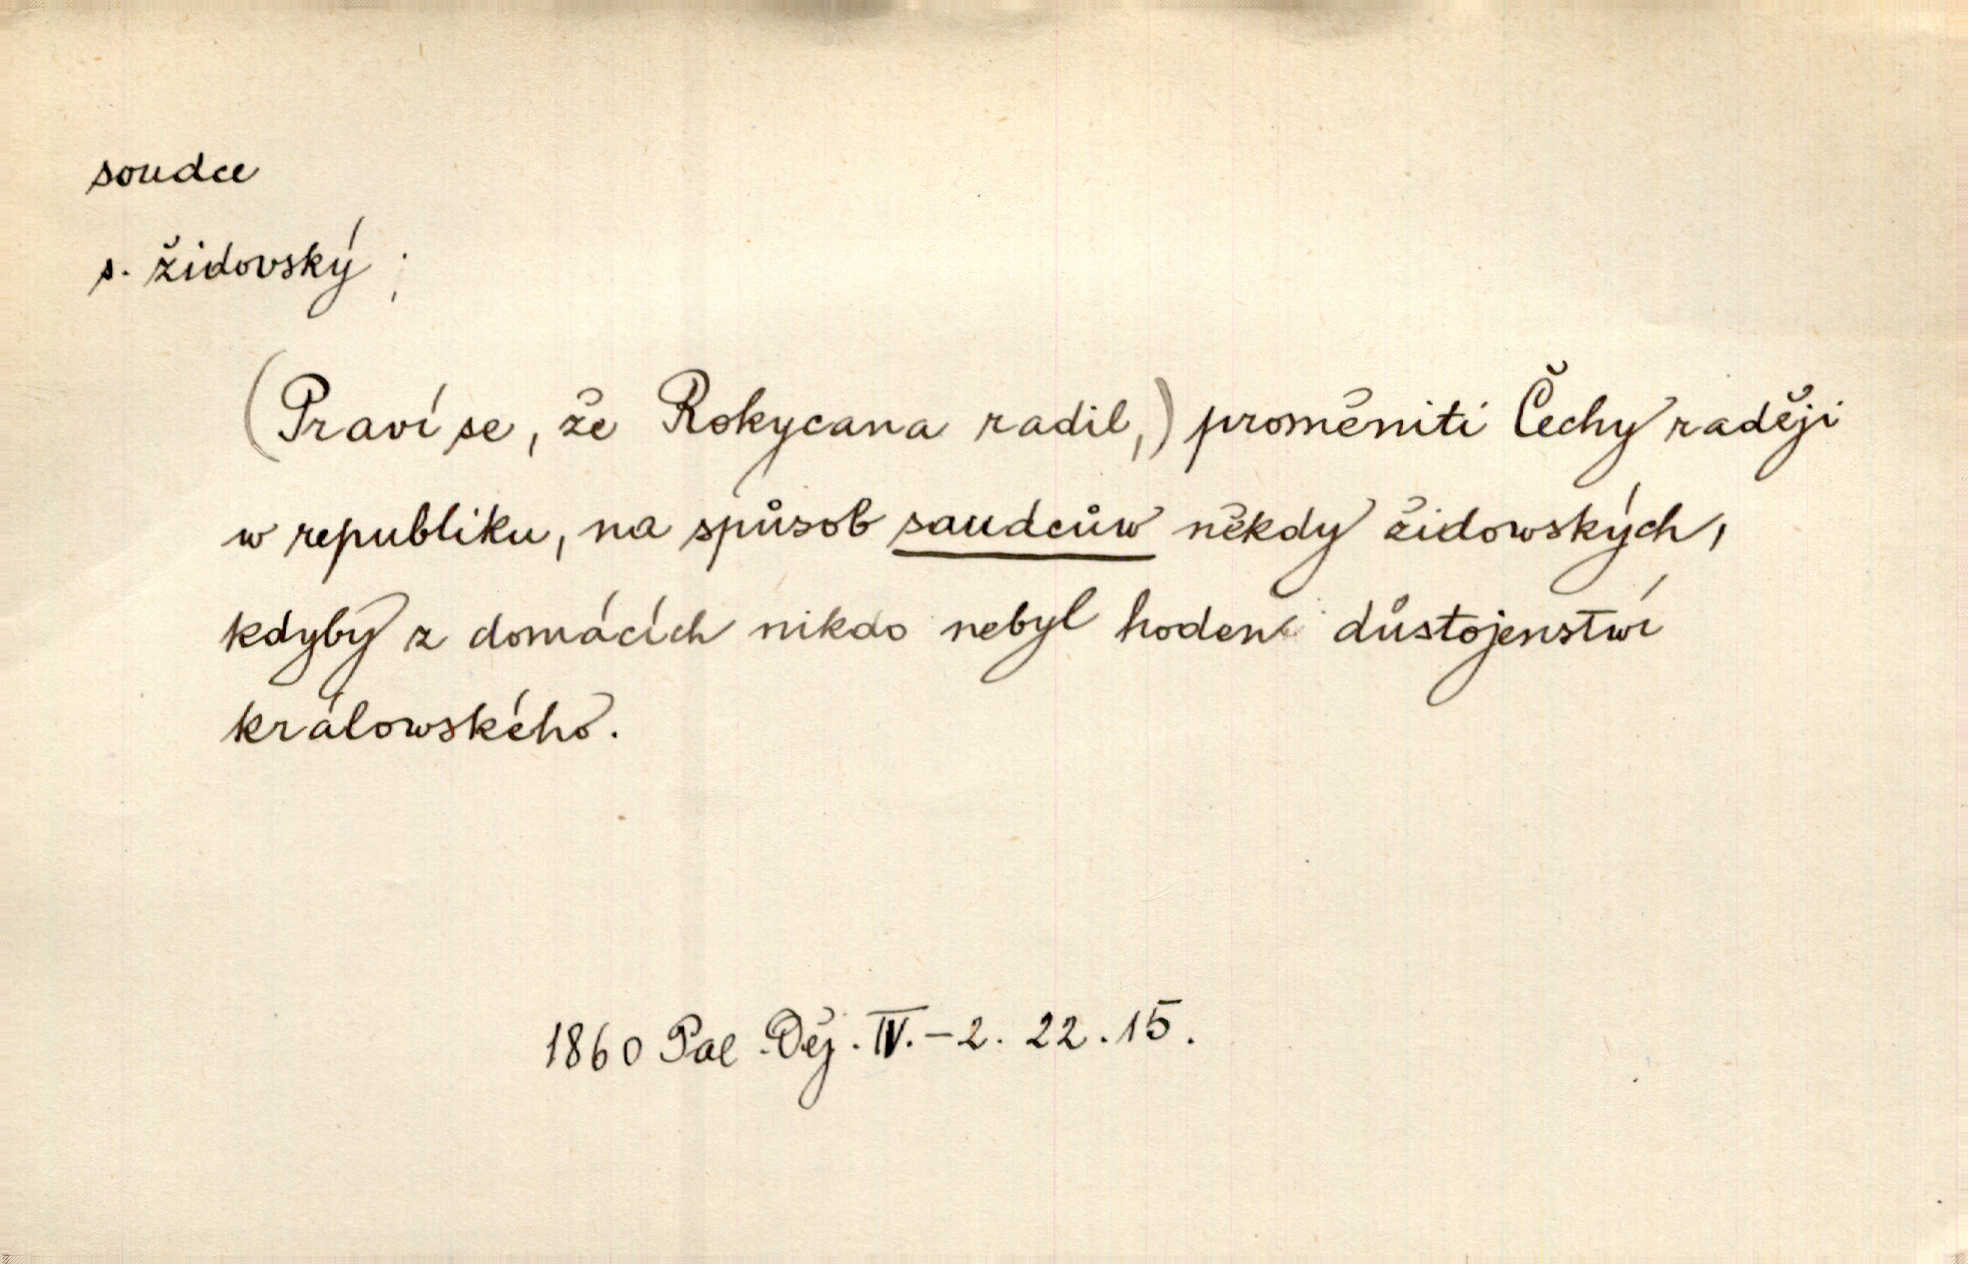 soudce
s. židovský ;
(Praví se, že Rokycana radil,) proměniti Čechy raději
w republiku, na spůsob saudcůw někdy židowských,
kdyby z domácích nikdo nebyl hoden důstojenstwí
králowského.
1860 Pal. Děj. IV.-2. 22.15.